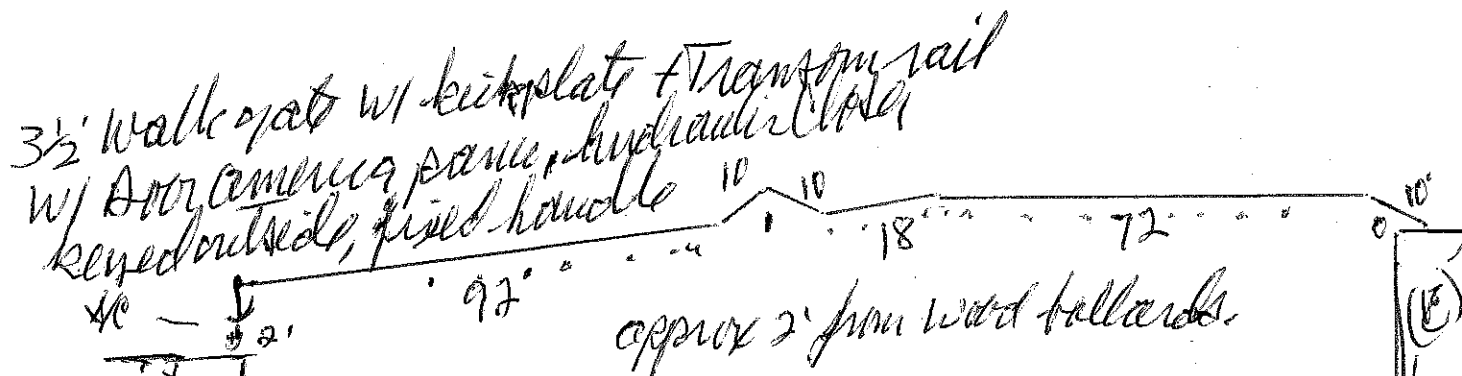 3½' Walk gate w/ kickplate + Transom rail
w/ Door America panic, hydraulic closer
keyed outside, fixed handle
10 10
18
72
10'
92
2'
approx 2' from wood bollards.
(E)